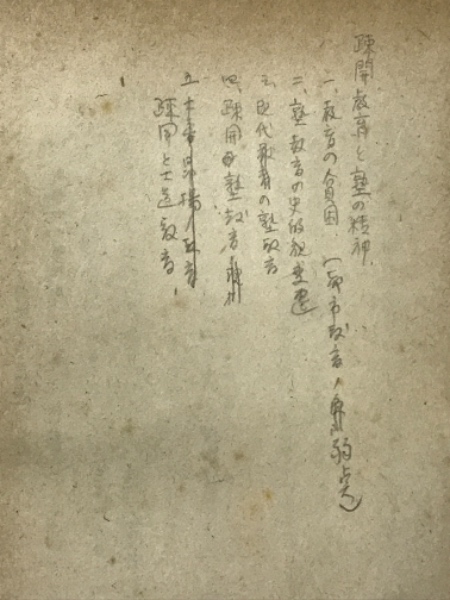 疎開教育と塾の精神
一、教育の貧困 (都市教育ノ弱点)
二、塾教育の史的観
三、現代教育の塾教育
四、疎開塾教育
五、昂揚ノ教育
疎開と士道教育